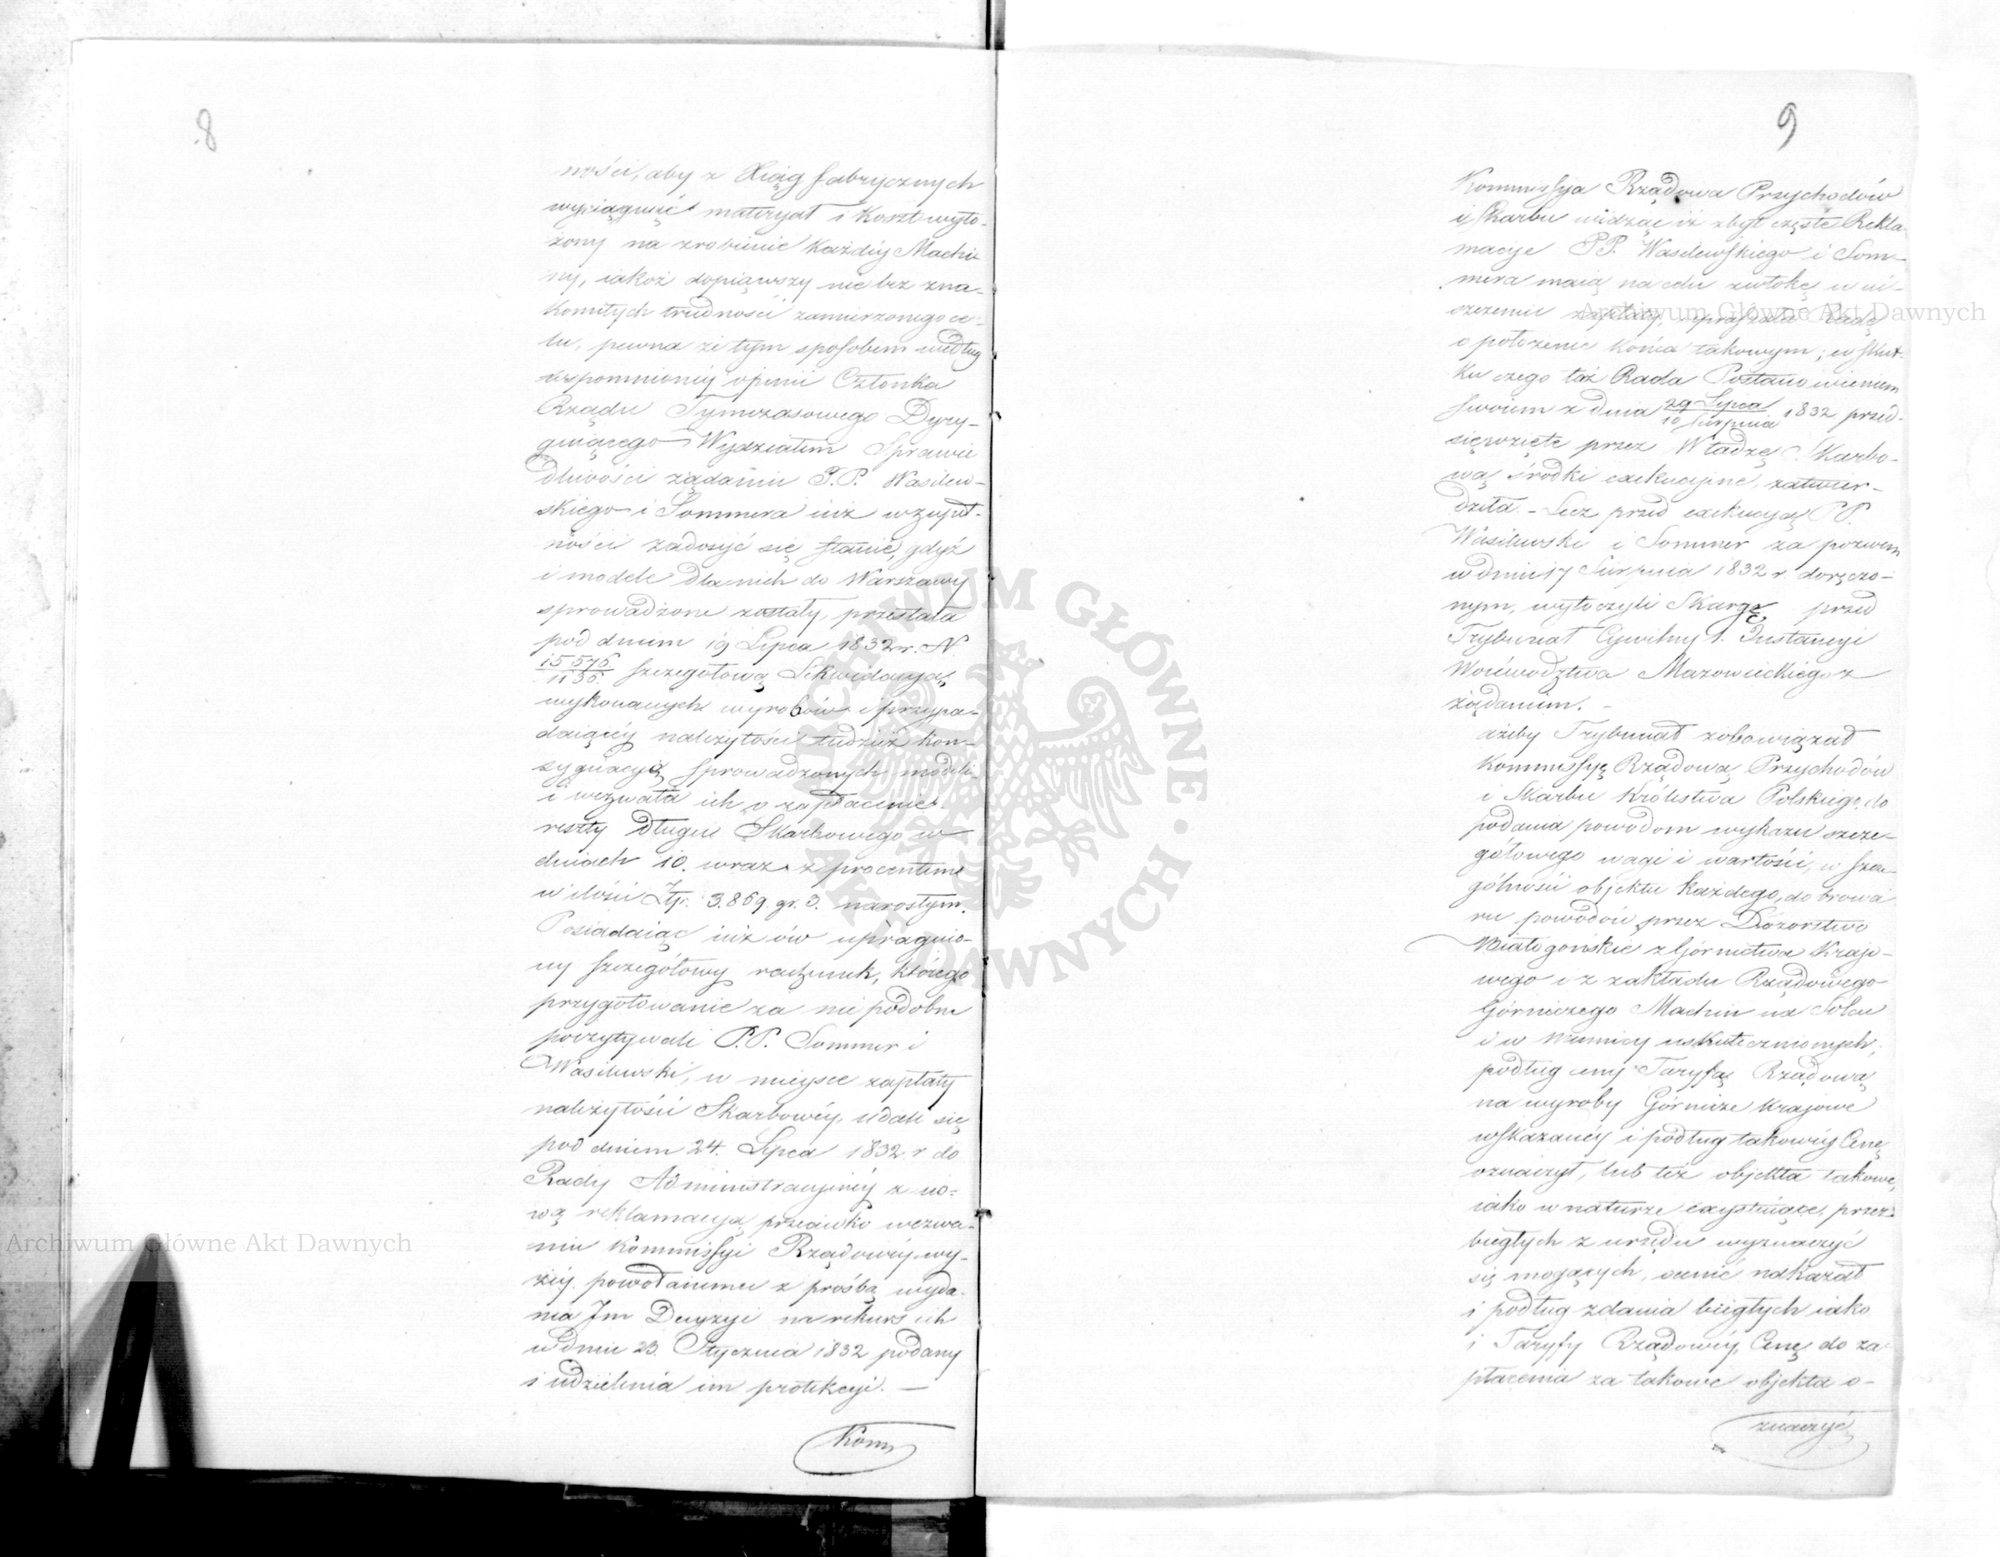 8
ności, aby z Xiąg fabrycznych
wyciągnąć materyał i koszt wyło-
żony na zrobienie każdéy Machi-
ny, iakoż dopiąwszy nie bez zna-
komitych trudności zamierzonego ce-
lu, pewna że tym sposobem według
wspomnionéy opinii Członka
Rządu Tymczasowego Dyry-
guiącego Wydziałem Sprawie
dliwości żądaniu P.P. Wasilew-
skiego i Sommera iuż w zupeł-
ności zadosyć się stanie, gdyż
i modele dla nich do Warszawy
sprowadzone zostały, przesłała
pod dniem 19 Lipca 1832 r. N.
15576/1136 szczegółową Likwidacyą
wykonanych wyrobów i przypa-
daiącéy należytości tudzież kon-
sygnacyą sprowadzonych modeli
i wezwała ich o zapłacenie
reszty długu Skarbowego w
dniach 10. wraz z procentem
w ilości Złp. 3.869. gr. 3. narosłym.
Posiadaiąc iuż ów upragnio-
ny szczegółowy rachunek, którego
przygotowanie za nie podobne
poczytywali P.P. Sommer i
Wasilewski, w mieysce zapłaty
należytości Skarbowéy, udali się
pod dniem 24. Lipca 1832 r do
Rady Administracyinéy z no-
wą reklamacyą przeciwko wezwa-
niu Kommissyi Rządowéy wy-
żéy powołanemu z prośbą wyda-
nia Im Decyzyi na rekurs ich
w dniu 23. Stycznia 1832 podany
i udzielenia im protekcyi. —
Kom
9
Kommissya Rządowa Przychodów
i Skarbu widząc iż zbyt częste Rekla-
macye P.P. Wasilewskiego i Som-
mera maią na celu zwłokę w ui-
szczeniu zapłaty, uprosiła Radę
o położenie końca takowym; w skut-
ku czego taż Rada Postanowieniem
swoiem z dnia 29 Lipca/10 Sierpnia 1832 przed-
sięwzięte przez Władzę Skarbo-
wą środki exekucyine, zatwier-
dziła. - Lecz przed exekucyą P.P.
Wasilewski i Sommer za pozwem
w dniu 17 Sierpnia 1832 r. doręczo-
nym, wytoczyli Skargę przed
Trybunał Cywilny 1. Instancyi
Woiewództwa Mazowieckiego z
żądaniem. -
ażeby Trybunał zobowiązał
Kommissyę Rządową Przychodów
i Skarbu Królestwa Polskiego, do
podania powodom wykazu szcze-
gółowego wagi i wartości, w szcze-
gólności objektu każdego, do browa
ru powodów przez Dozorstwo
Białogońskie z Górnictwa Kraio-
wego i z zakładu Rządowego
Górniczego Machin na Solcu
i w Mennicy uskutecznionych;
podług ceny Taryfą Rządową
na wyroby Górnicze krajowe
wskazanéy i podług takowéy Cenę
oznaczył, lub też objekta takowe,
iako w naturze exystuiące, przez
biegłych z urzędu wyznaczyć
się mogących, ocenić nakazał
i podług zdania biegłych iako
i Taryfy Rządowéy, Cenę do za
płacenia za takowe objekta o-
znaczyć
Archiwum Główne Akt Dawnych
Archiwum Główne Akt Dawnych
ARCHIWUM GŁÓWNE • AKT DAWNYCH •